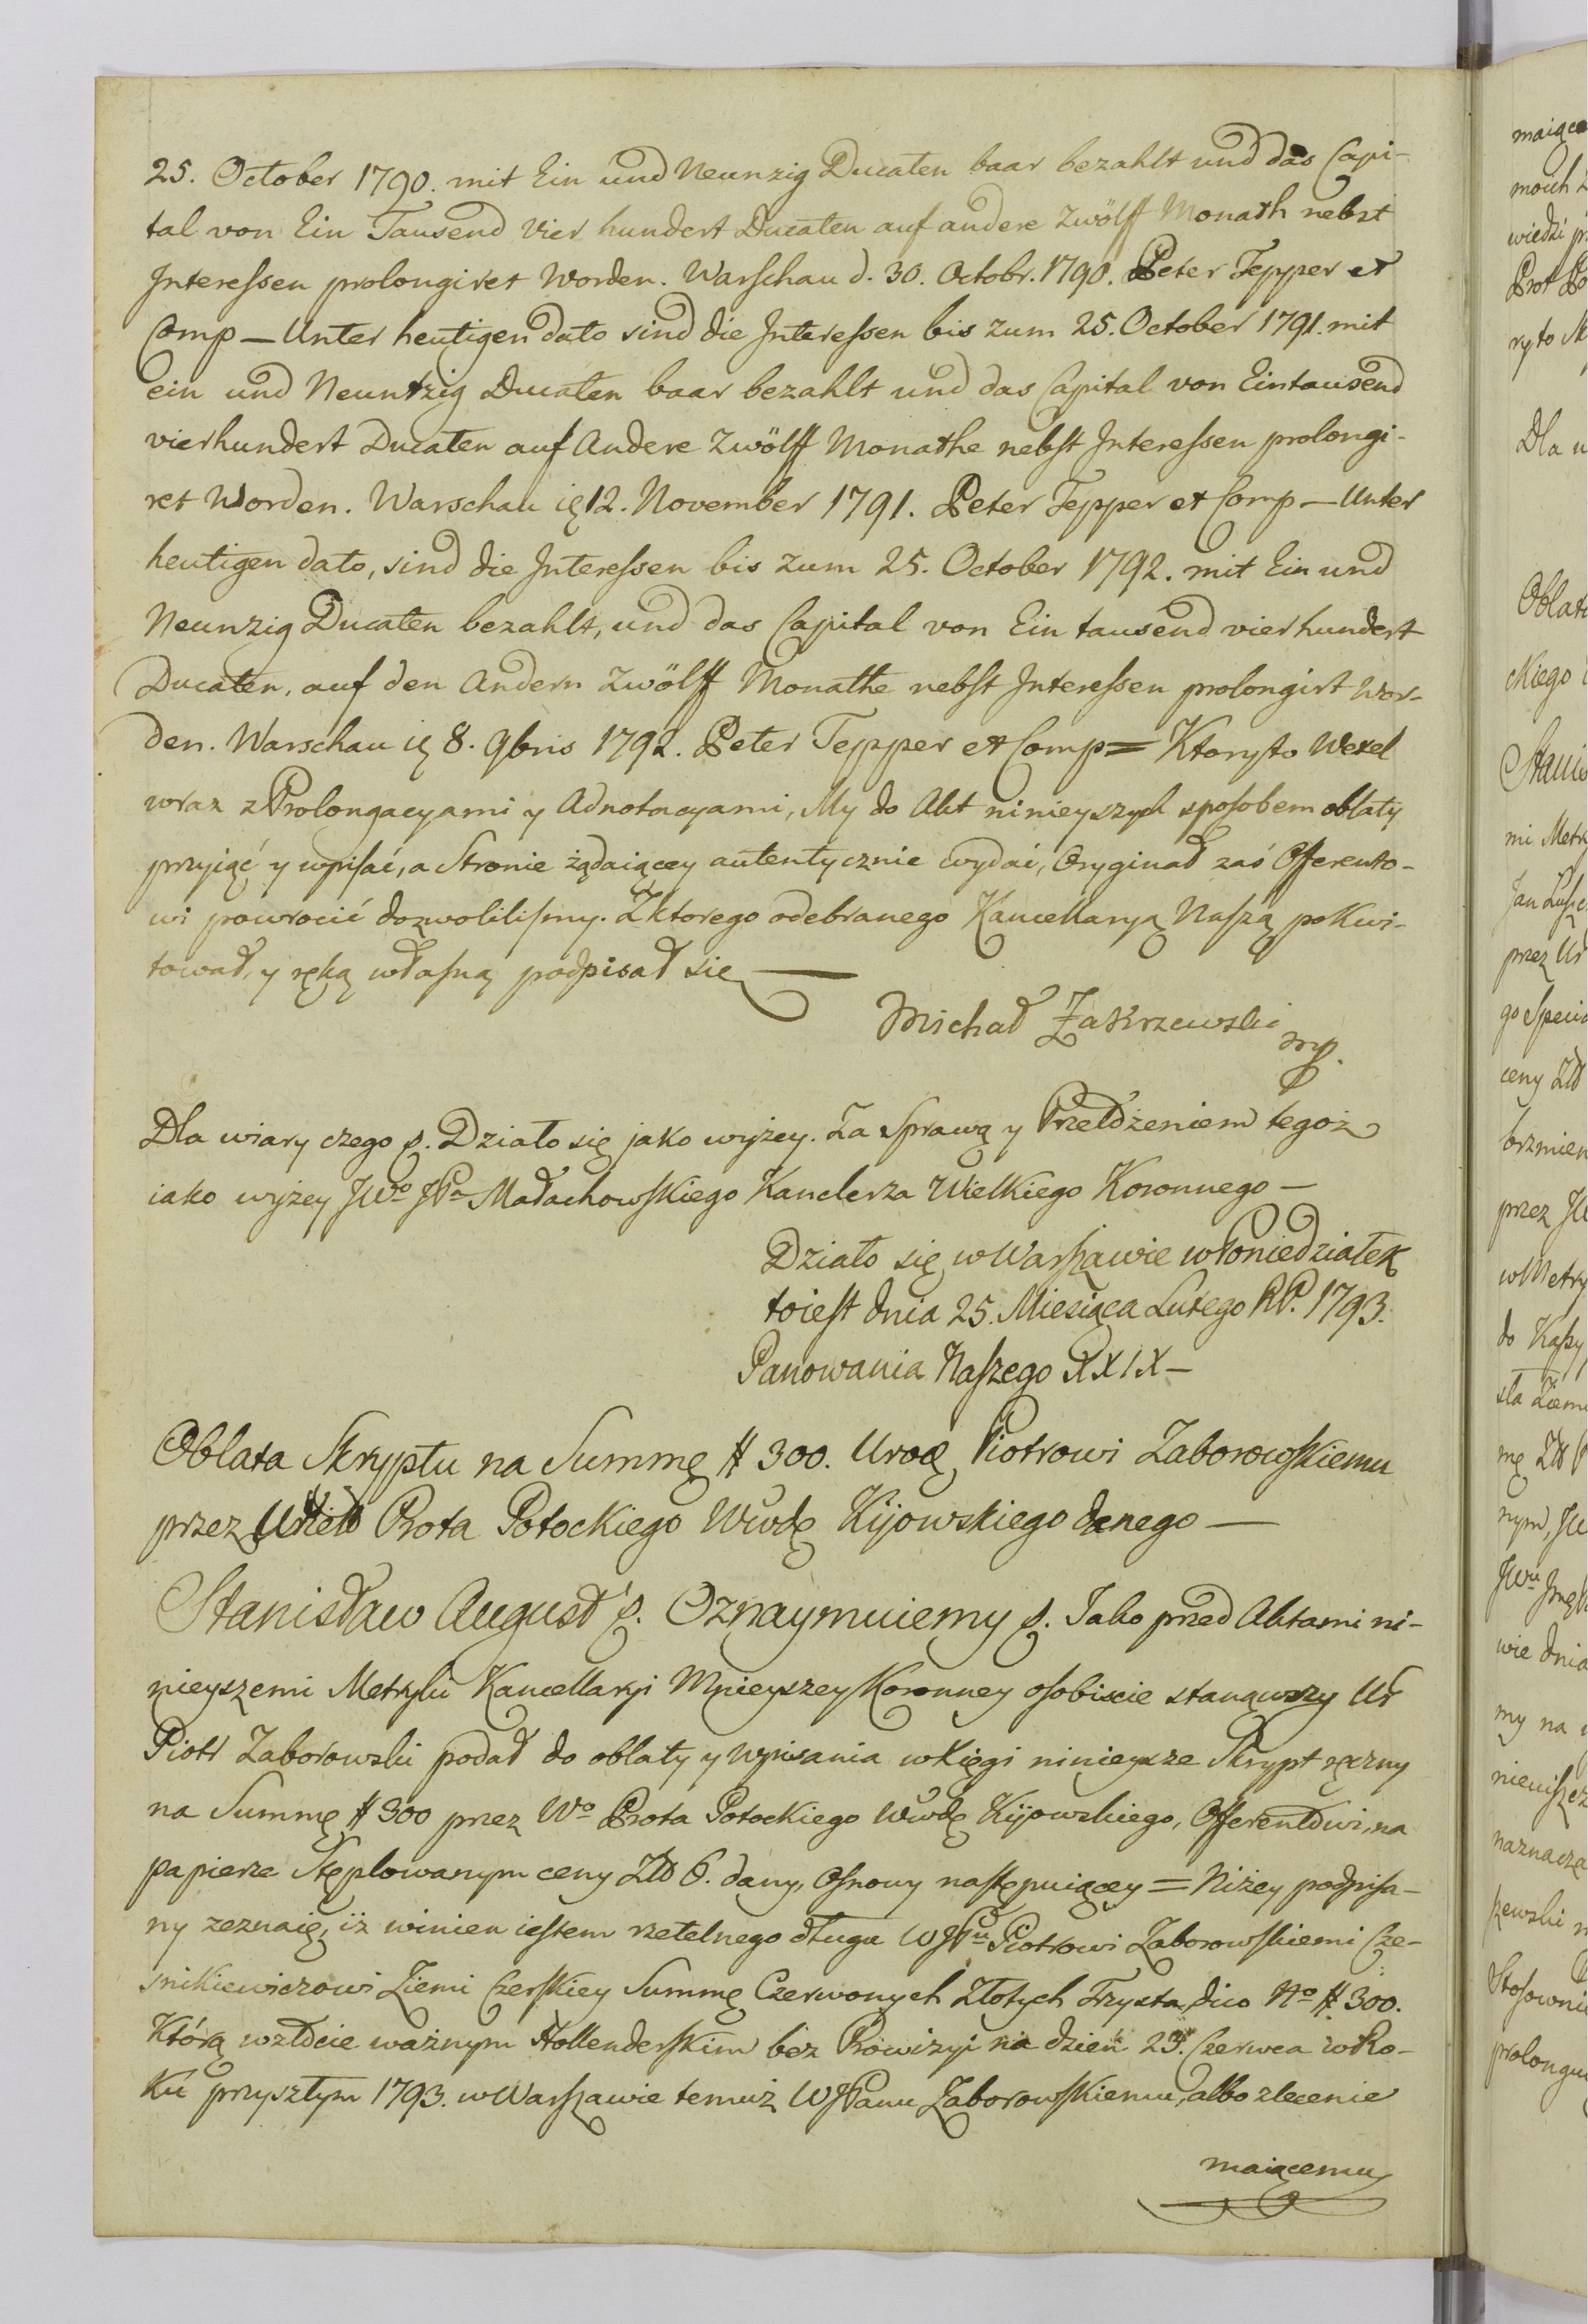 25. October 1790. mit Ein und Neunzig Ducaten baar bezahlt und das Capi-
tal von Ein Tausend Vier hundert Ducaten auf andere Zwölff Monath nebst
Interessen prolongiret Worden. Warschau d. 30. Octobr. 1790. Peter Tepper et
Comp — Unter heutigen dato sind die Interessen bis zum 25. October 1791. mit
ein und Neuntzig Ducaten baar bezahlt und das Capital von Eintausend
vierhundert Ducaten auf Andere Zwölff Monathe nebst Interessen prolongi-
ret Worden. Warschau 12. November 1791. Peter Tepper et Comp — Unter
heutigen dato, sind die Interessen bis zum 25. October 1792. mit Ein und
Neunzig Ducaten bezahlt, und das Capital von Ein tausend vierhundert
Ducaten, auf den Andern Zwölff Monathe nebst Interessen prolongirt Wor-
den. Warschau 8. 9bris 1792. Peter Tepper et Comp = Ktoryto Wexel
wraz z Prolongacyami y Adnotacyami, My do Akt ninieyszych sposobem oblaty
przyiąć y wpisać, a Stronie żądaiącey autentycznie wydai, Oryginał zaś Offerento-
wi powrocić dozwolilismy. Z ktorego odebranego Kancellaryą Naszą pokwi-
tował, y ręką własną podpisał się —
Michał Zakrzewski
mp.
Dla wiary czego p. Działo się jako wyżey. Za Sprawą y Przełożeniem tegoż
iako wyżey JWo JPa Małachowskiego Kanclerza Wielkiego Koronnego —
Działo się w Warszawie w Poniedziałek
toiest dnia 25. Miesiąca Lutego RP. 1793.
Panowania Naszego XXIX —
Oblata Skryptu na Summę # 300. Urod. Piotrowi Zaborowskiemu
przez Prota Potockiego Wwdę Kijowskiego danego —
Stanisław August p. Oznaymuiemy p. Iako przed Aktami ni-
nieyszemi Metryki Kancellaryi Mnieyszey Koronney osobiscie stanąwszy Ur
Piotr Zaborowski podał do oblaty y wpisania w Xięgi ninieysze Skrypt ręczny
na Summę # 300 przez Wo Prota Potockiego Wwdę Kijowskiego, Offerentowi, na
papierze Stęplowanym ceny Zł 6. dany, Osnowy następuiącey = Niżey podpisa-
ny zeznaię, iż winien iestem rzetelnego długu WJPu Piotrowi Zaborowskiemi Cze-
snikiewiczowi Ziemi Czerskiey Summę Czerwonych Złotych Trzysta, dico No # 300.
Którą w złocie ważnym Hollenderskim bez Prowizyi na dzień 23. Czerwca w Ro-
ku przyszłym 1793. w Warszawie temuż WJPanu Zaborowskiemu, albo zlecenie
maiącemu